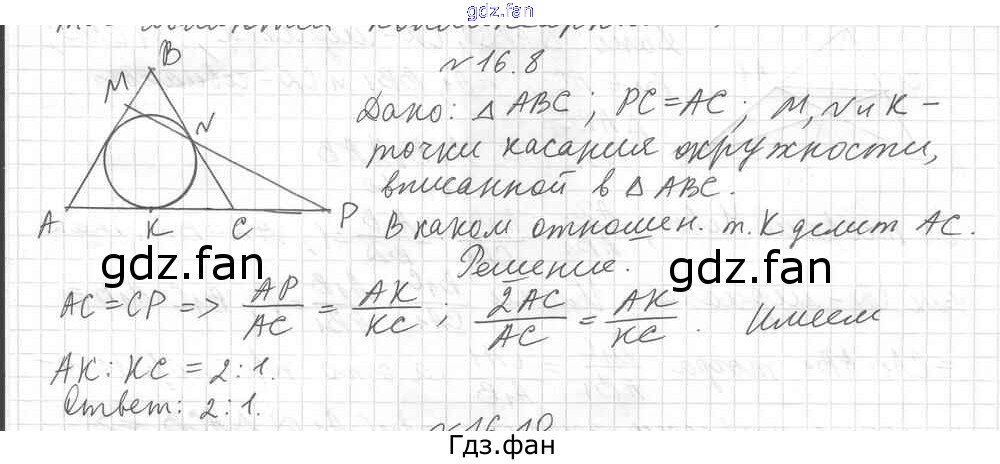 gdz.fan
№16.8
B
M
N
A
K
C
P
Дано: △ABC; PC=AC; M, N и K –
точки касания окружности,
вписанной в △ABC.
В каком отношен. т. K делит AC.
Решение.
gdz.fan
gdz.fan
AC = CP => AP/AC = AK/KC; 2AC/AC = AK/KC. Имеем
AK : KC = 2 : 1.
Ответ: 2 : 1.
№16.10
Гдз.фан